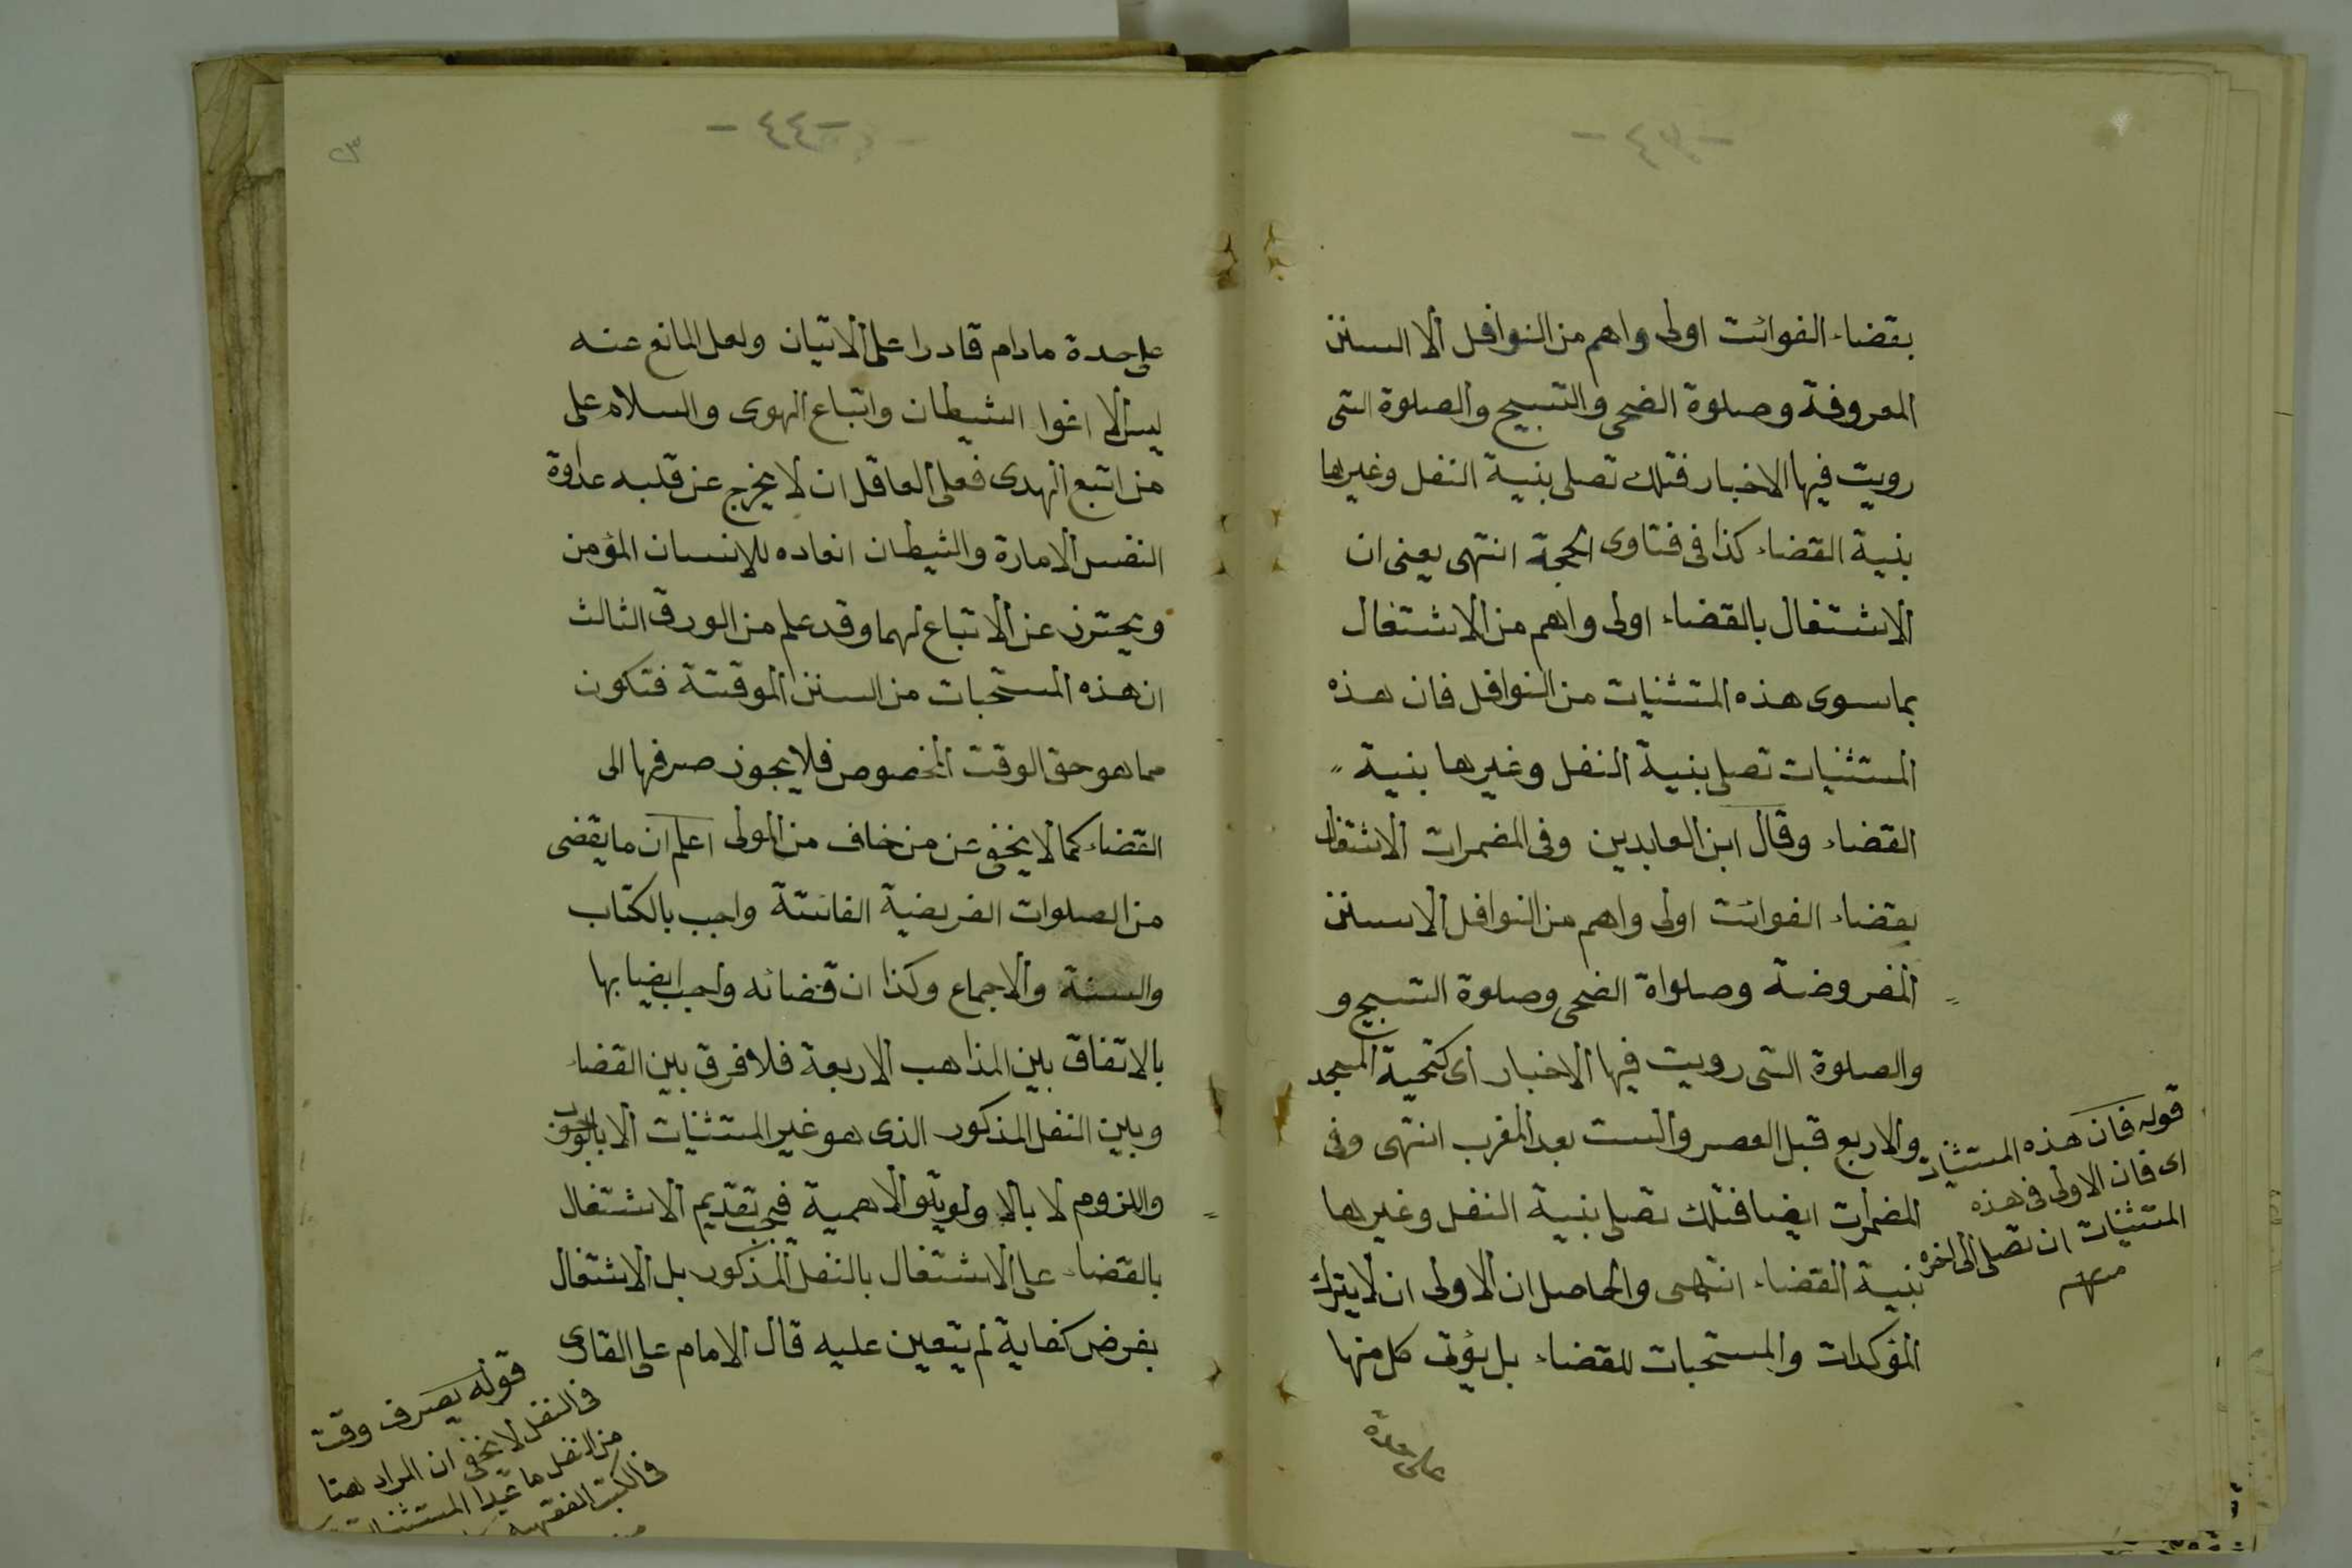 -٤٣-
بقضاء الفوائت اولى واهم من النوافل الا السنن
المعروفة وصلوة الضحى والتسبيح والصلوة التى
رويت فيها الاخبار فتلك تصلى بنية النفل وغيرها
بنية القضاء كذا فى فتاوى الحجة انتهى يعنى ان
الاشتغال بالقضاء اولى واهم من الاشتغال
بما سوى هذه المستثنيات من النوافل فان هذه
المستثنيات تصلى بنية النفل وغيرها بنية
القضاء وقال ابن العابدين وفى المضمرات الاشتغال
بقضاء الفوائت اولى واهم من النوافل الا سنن
المفروضة وصلواة الضحى وصلوة التسبيح و
والصلوة التى رويت فيها الاخبار اى كتحية المسجد
والاربع قبل العصر والست بعد المغرب انتهى وفى
المضمرات ايضا فتلك تصلى بنية النفل وغيرها
بنية القضاء انتهى والحاصل ان الاولى ان لا يترك
المؤكدات والمستحبات للقضاء بل يؤتى كل منها
على حدة
قوله فان هذه المستثنيات
اى فان الاولى فى هذه
المستثنيات ان تصلى الى اخره
-٤٤-
٢٣
على حدة مادام قادرا على الاتيان ولعل المانع عنه
ليس الا اغوا الشيطان واتباع الهوى والسلام على
من اتبع الهدى فعلى العاقل ان لا يخرج عن قلبه عداوة
النفس الامارة والشيطان انعاده للإنسان المؤمن
ويحترز عن الاتباع لهما وقد علم من الورق الثالث
ان هذه المستحبات من السنن الموقتة فتكون
مما هو حق الوقت المخصوص فلا يجوز صرفها الى
القضاء كما لا يخفى عن من خاف من المولى اعلم ان ما يقضى
من الصلوات الفريضية الفائتة واجب بالكتاب
والسنة والاجماع وكذا ان قضائه واجب ايضا بها
بالاتفاق بين المذاهب الاربعة فلا فرق بين القضاء
وبين النفل المذكور الذى هو غير المستثنيات الا بالوجوب
واللزوم لا بالاولوية والاهمية فيجب تقديم الاشتغال
بالقضاء على الاشتغال بالنفل المذكور بل الاشتغال
بفرض كفاية لم يتعين عليه قال الامام على القارى
قوله يصرف وقت
فى النفل لا يخفى ان المراد هنا
من النفل ما عدا المستثنيات
فى الكتب الفقهية